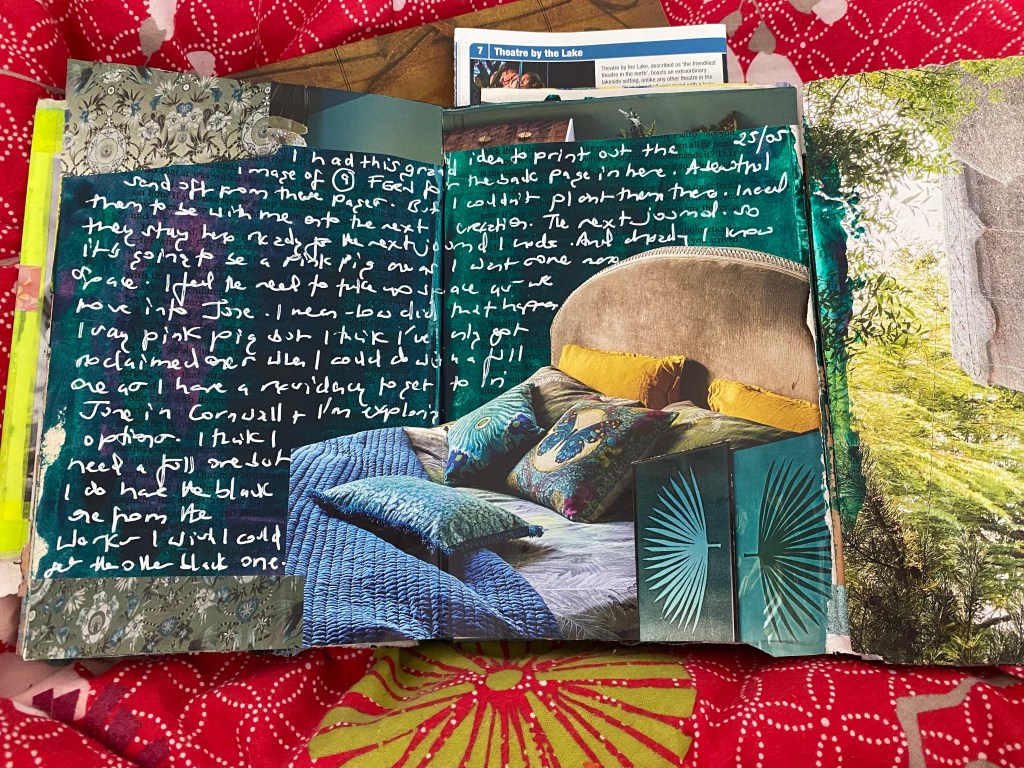 7 Theatre by the Lake
Theatre by the Lake, described as 'the friendliest
theatre in the north', boasts an extraordinary
lakeside setting, unlike any other theatre in the
25/05
I had this grand idea to print out the
image of 9 FEEd for the back page in here. A beautiful
send off from these pages. But I couldn't plant them there. I need
them to be with me onto the next creation. The next journal. So
they stay here ready for the next journal I made. And already I know
it's going to be a pink pig one as I want some more
space. I feel the need to take up space as we
move into June. I mean - how did that happen
I say pink pig but I think I've only got
reclaimed ones when I could do with a full
one as I have a residency to get to in
June in Cornwall + I'm exploring
options. I think I
need a full one but
I do have the black
one from the
works I wish I could
get the other black one.